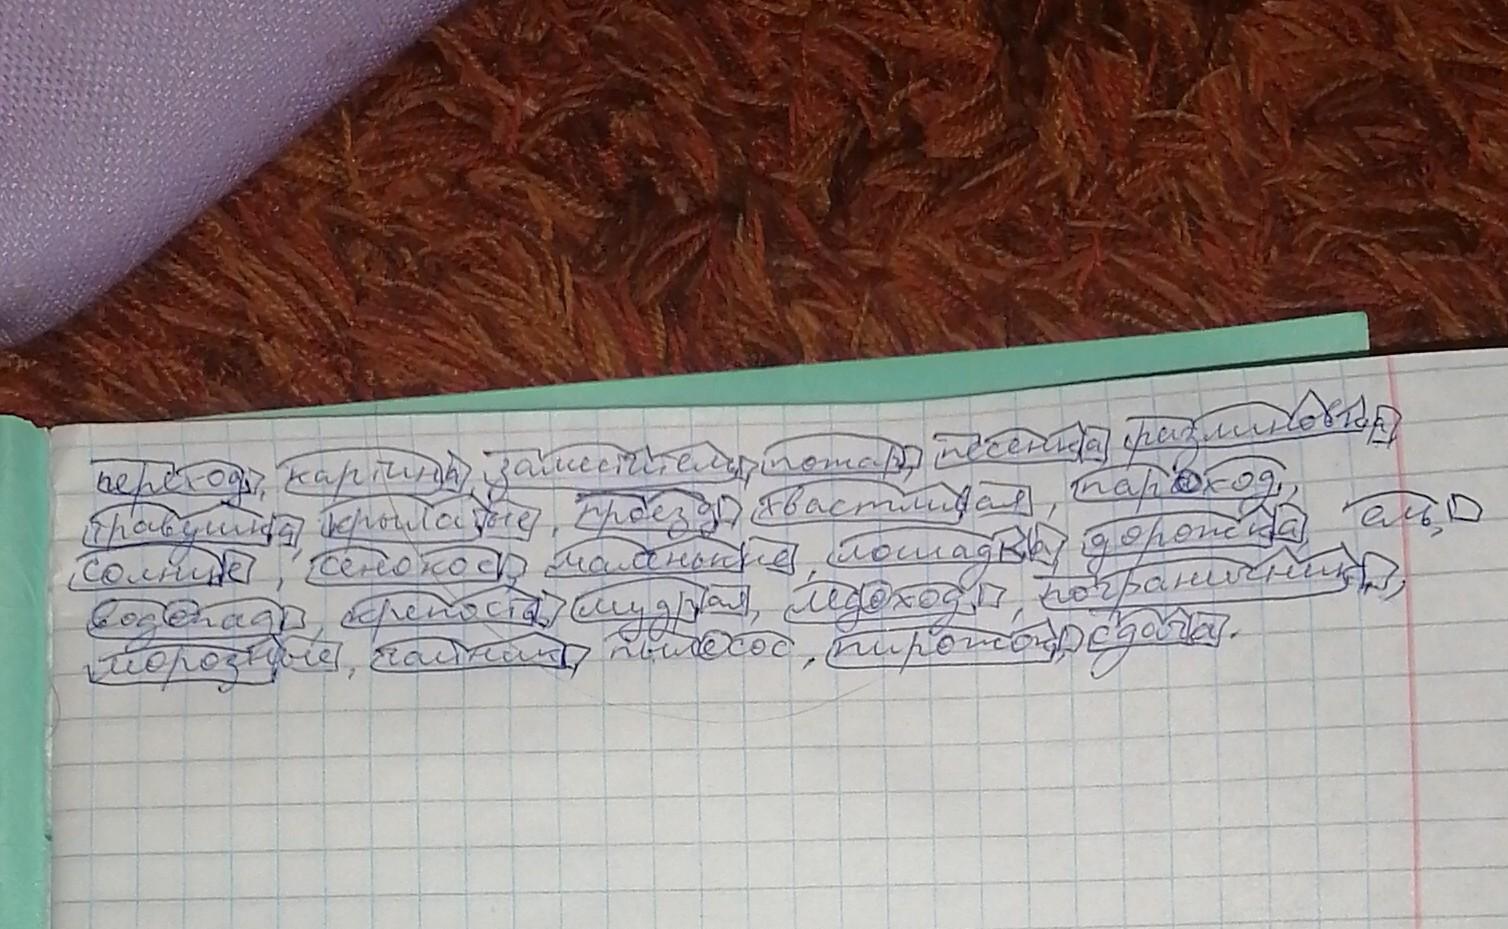 переход, картина, заместитель, пожар, песенка разлиновка,
травушка, крылатые, проезд, хвастливая, пароход,
солнце, сенокос, маленькие, лошадка, дорожка ель,
водопад, крепость, мудрая, ледоход, пограничник,
морозные, чайник, пылесос, пирожок, сдача.